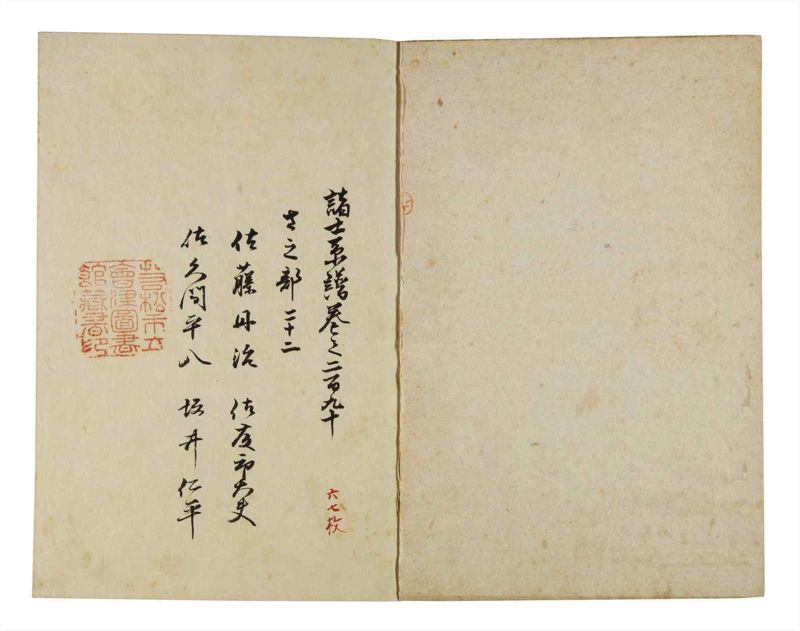 諸士系譜巻之二百九十
さ之部 二十二
佐藤丹治 佐藤部大夫
佐久間平八 坂井仁平
六七枚
若松市立
會津圖書
館藏書印